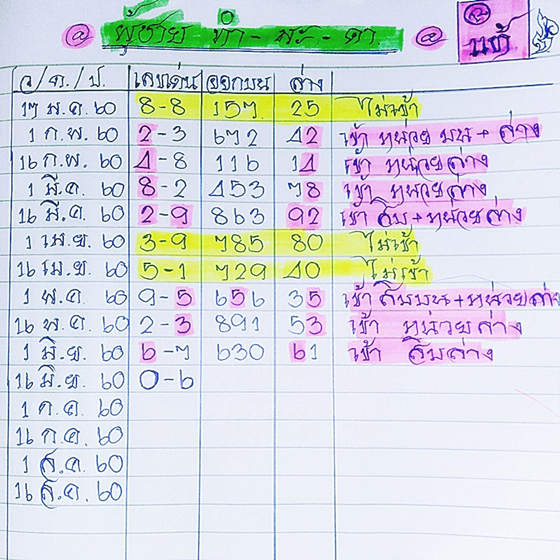 @ ผู้ชาย ทำ-มะ-ดา @ @ แท้
ว/ด/ป. เลขเด่น ออกบน ล่าง
17 ม.ค. 60 8-8 157. 25 ไม่เข้า
1 ก.พ. 60 2-3 672 42 เข้า หน่วย บน + ล่าง
16 ก.พ. 60 4-8 116 14 เข้า หน่วยล่าง
1 มี.ค. 60 8-2 453 78 เข้า หน่วยล่าง
16 มี.ค. 60 2-9 863 92 เข้า สิบ+หน่วยล่าง
1 เม.ย. 60 3-9 785 80 ไม่เข้า
16 เม.ย. 60 5-1 729 40 ไม่เข้า
1 พ.ค. 60 9-5 656 35 เข้า สิบบน+หน่วยล่าง
16 พ.ค. 60 2-3 891 53 เข้า หน่วยล่าง
1 มิ.ย. 60 6-7 630 61 เข้า สิบล่าง
16 มิ.ย. 60 0-6
1 ก.ค. 60
16 ก.ค. 60
1 ส.ค. 60
16 ส.ค. 60